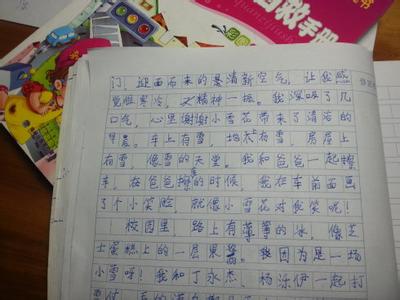 自救手册
门！迎面而来的是清新空气，让我感
觉胜寒冷，又精神一振。我深吸了几
口气，心里谢谢小雪花带来了清洁的
早晨。车上有雪，地木有雪，房屋上
有雪，像雪的天堂。我和爸爸一起擦
车，在爸爸擦的时候，我在车前面画
了个小笑脸，就像小雪花对我笑呢！
校园里，路上有薄薄的冰，像芝
士蛋糕上的一层果酱。我因为是一场
小雪呀！我和丁永杰、杨泺伊一起打